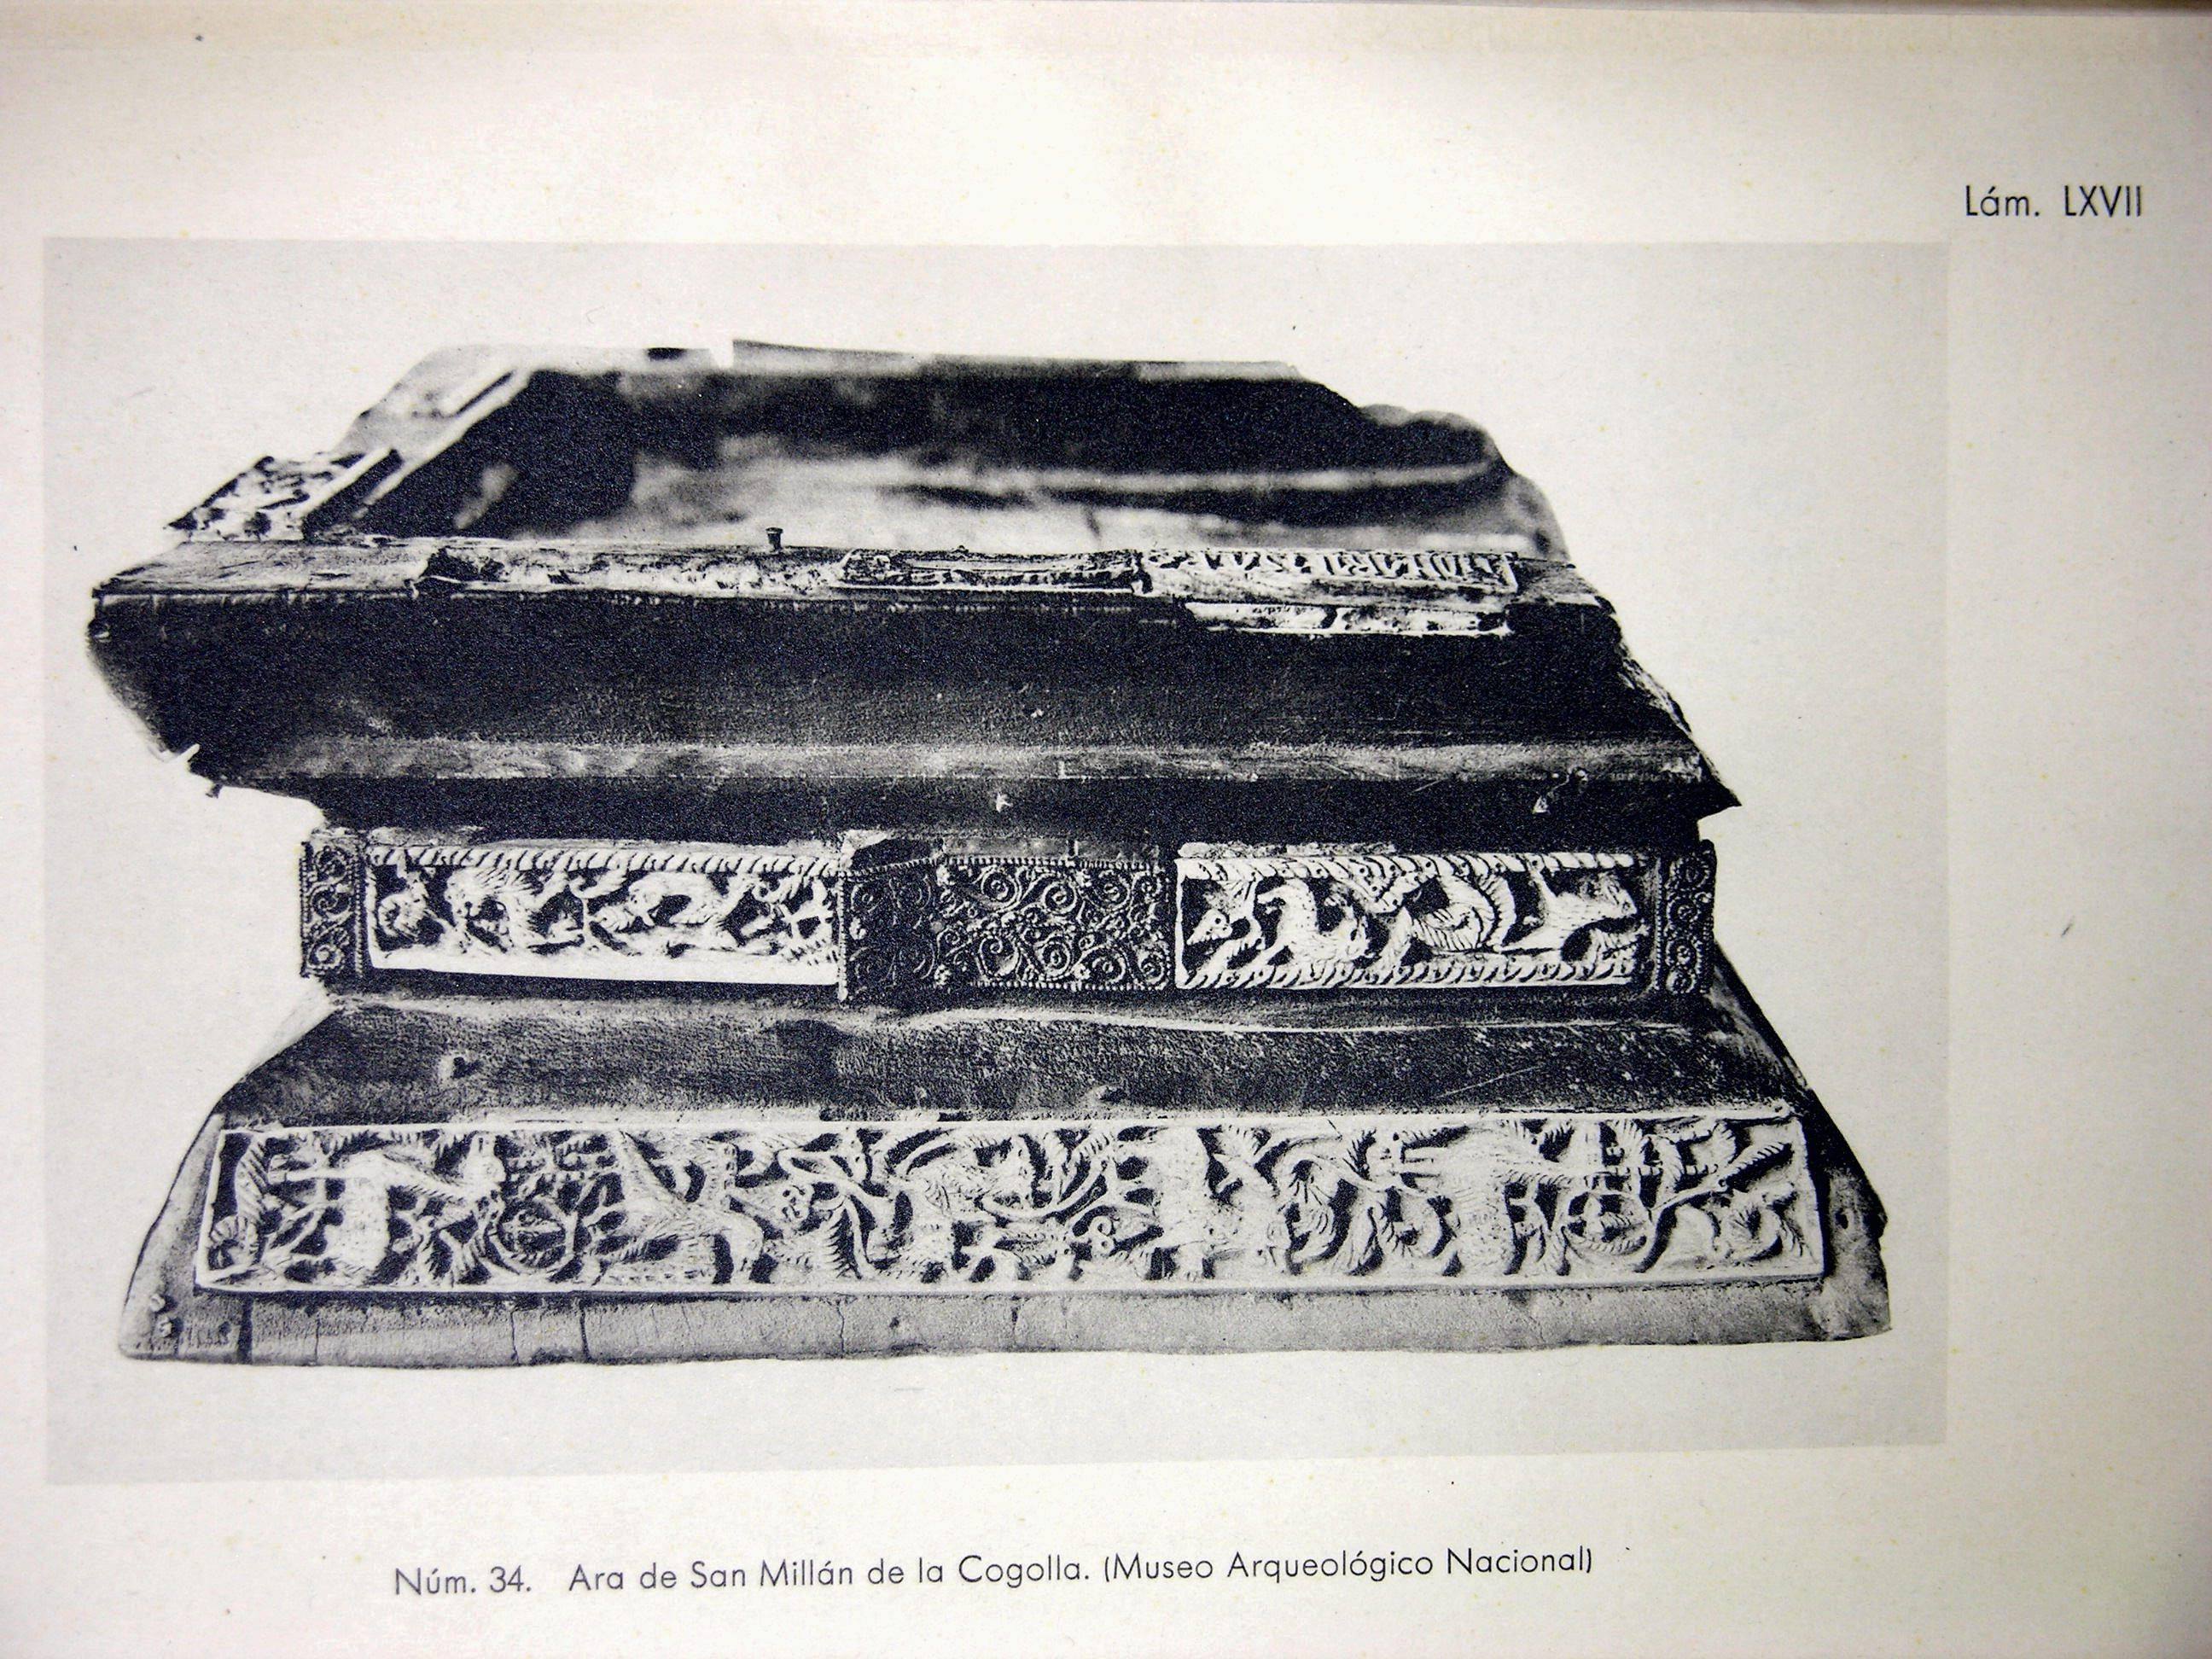 Lám. LXVII
Núm. 34. Ara de San Millán de la Cogolla. (Museo Arqueológico Nacional)